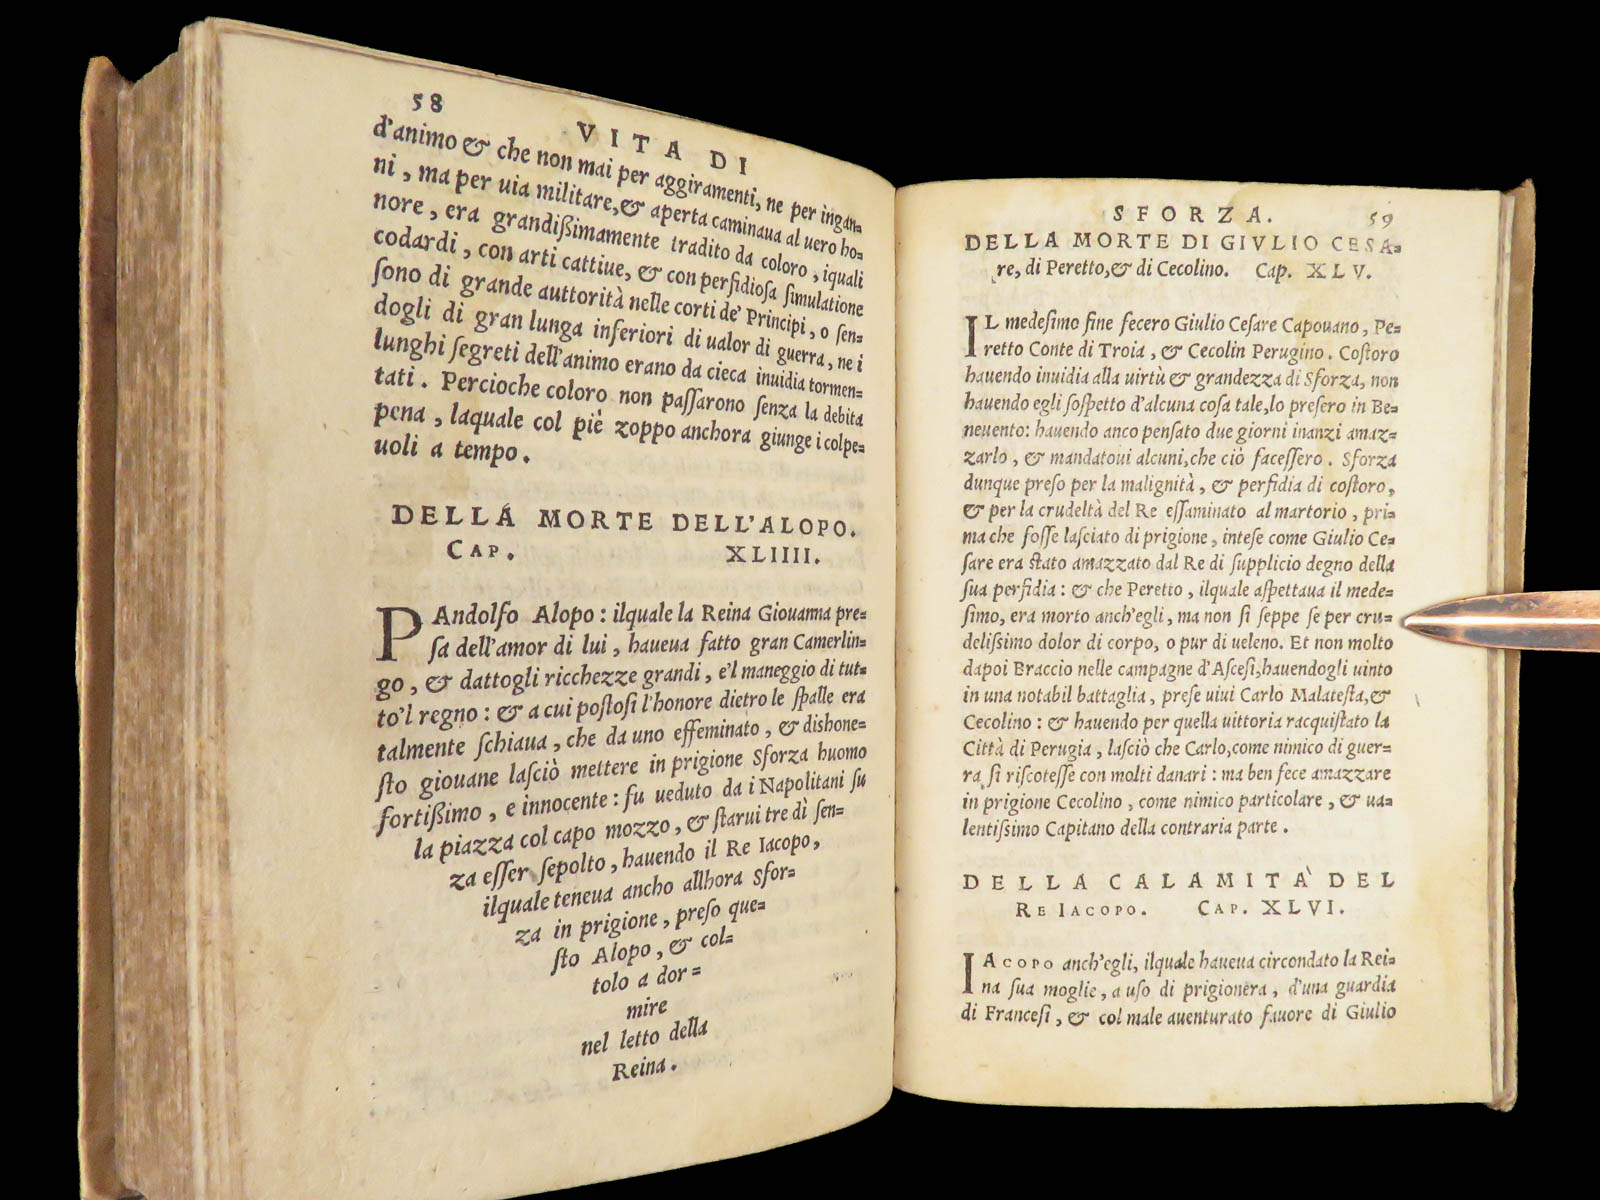 58
VITA DI
d'animo & che non mai per aggiramenti, ne per ingan=
ni, ma per uia militare, & aperta caminaua al uero ho=
nore, era grandißimamente tradito da coloro, iquali
codardi, con arti cattiue, & con perfidiosa simulatione
ſono di grande auttorità nelle corti de' Principi, o ſen=
dogli di gran lunga inferiori di ualor di guerra, ne i
lunghi ſegreti dell'animo erano da cieca inuidia tormen=
tati. Percioche coloro non paſſarono ſenza la debita
pena, laquale col piè zoppo anchora giunge i colpe=
uoli a tempo.
DELLA MORTE DELL'ALOPO.
CAP. XLIIII.
PAndolfo Alopo: ilquale la Reina Giouanna pre=
ſa dell'amor di lui, haueua fatto gran Camerlin=
go, & dattogli ricchezze grandi, e'l maneggio di tut=
to'l regno: & a cui poſtoſi l'honore dietro le ſpalle era
talmente ſchiaua, che da uno effeminato, & dishone=
ſto giouane laſciò mettere in prigione Sforza huomo
fortißimo, e innocente: fu ueduto da i Napolitani ſu
la piazza col capo mozzo, & ſtarui tre dì ſen=
za eſſer ſepolto, hauendo il Re Iacopo,
ilquale teneua ancho allhora Sfor=
za in prigione, preſo que=
ſto Alopo, & col=
tolo a dor=
mire
nel letto della
Reina.
SFORZA. 59
DELLA MORTE DI GIVLIO CESA=
re, di Peretto, & di Cecolino. Cap. XLV.
IL medeſimo fine fecero Giulio Ceſare Capouano, Pe=
retto Conte di Troia, & Cecolin Perugino. Coſtoro
hauendo inuidia alla uirtù & grandezza di Sforza, non
hauendo egli ſoſpetto d'alcuna coſa tale, lo preſero in Be=
neuento: hauendo anco penſato due giorni inanzi amaz=
zarlo, & mandatoui alcuni, che ciò faceſſero. Sforza
dunque preſo per la malignità, & perfidia di coſtoro,
& per la crudeltà del Re eſſaminato al martorio, pri=
ma che foſſe laſciato di prigione, inteſe come Giulio Ce=
ſare era ſtato amazzato dal Re di ſupplicio degno della
ſua perfidia: & che Peretto, ilquale aſpettaua il mede=
ſimo, era morto anch'egli, ma non ſi ſeppe ſe per cru=
deliſſimo dolor di corpo, o pur di ueleno. Et non molto
dapoi Braccio nelle campagne d'Aſceſi, hauendogli uinto
in una notabil battaglia, preſe uiui Carlo Malateſta, &
Cecolino: & hauendo per quella uittoria racquiſtato la
Città di Perugia, laſciò che Carlo, come nimico di guer=
ra, ſi riſcoteſſe con molti danari: ma ben fece amazzare
in prigione Cecolino, come nimico particolare, & ua=
lentiſſimo Capitano della contraria parte.
DELLA CALAMITA' DEL
RE IACOPO. CAP. XLVI.
IACOPO anch'egli, ilquale haueua circondato la Rei=
na ſua moglie, a uſo di prigionera, d'una guardia
di Franceſi, & col male auenturato fauore di Giulio